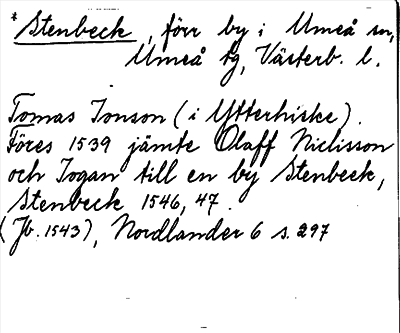 * Stenbeck, förr by i Umeå sn,
Umeå tg, Västerb. l.
Tomas Jonson (i Ytterhiske).
Föres 1539 jämte Olaff Niclisson
och Jogan till en by Stenbeck,
Stenbeck 1546, 47.
(Jb. 1543), Nordlander 6 s. 297